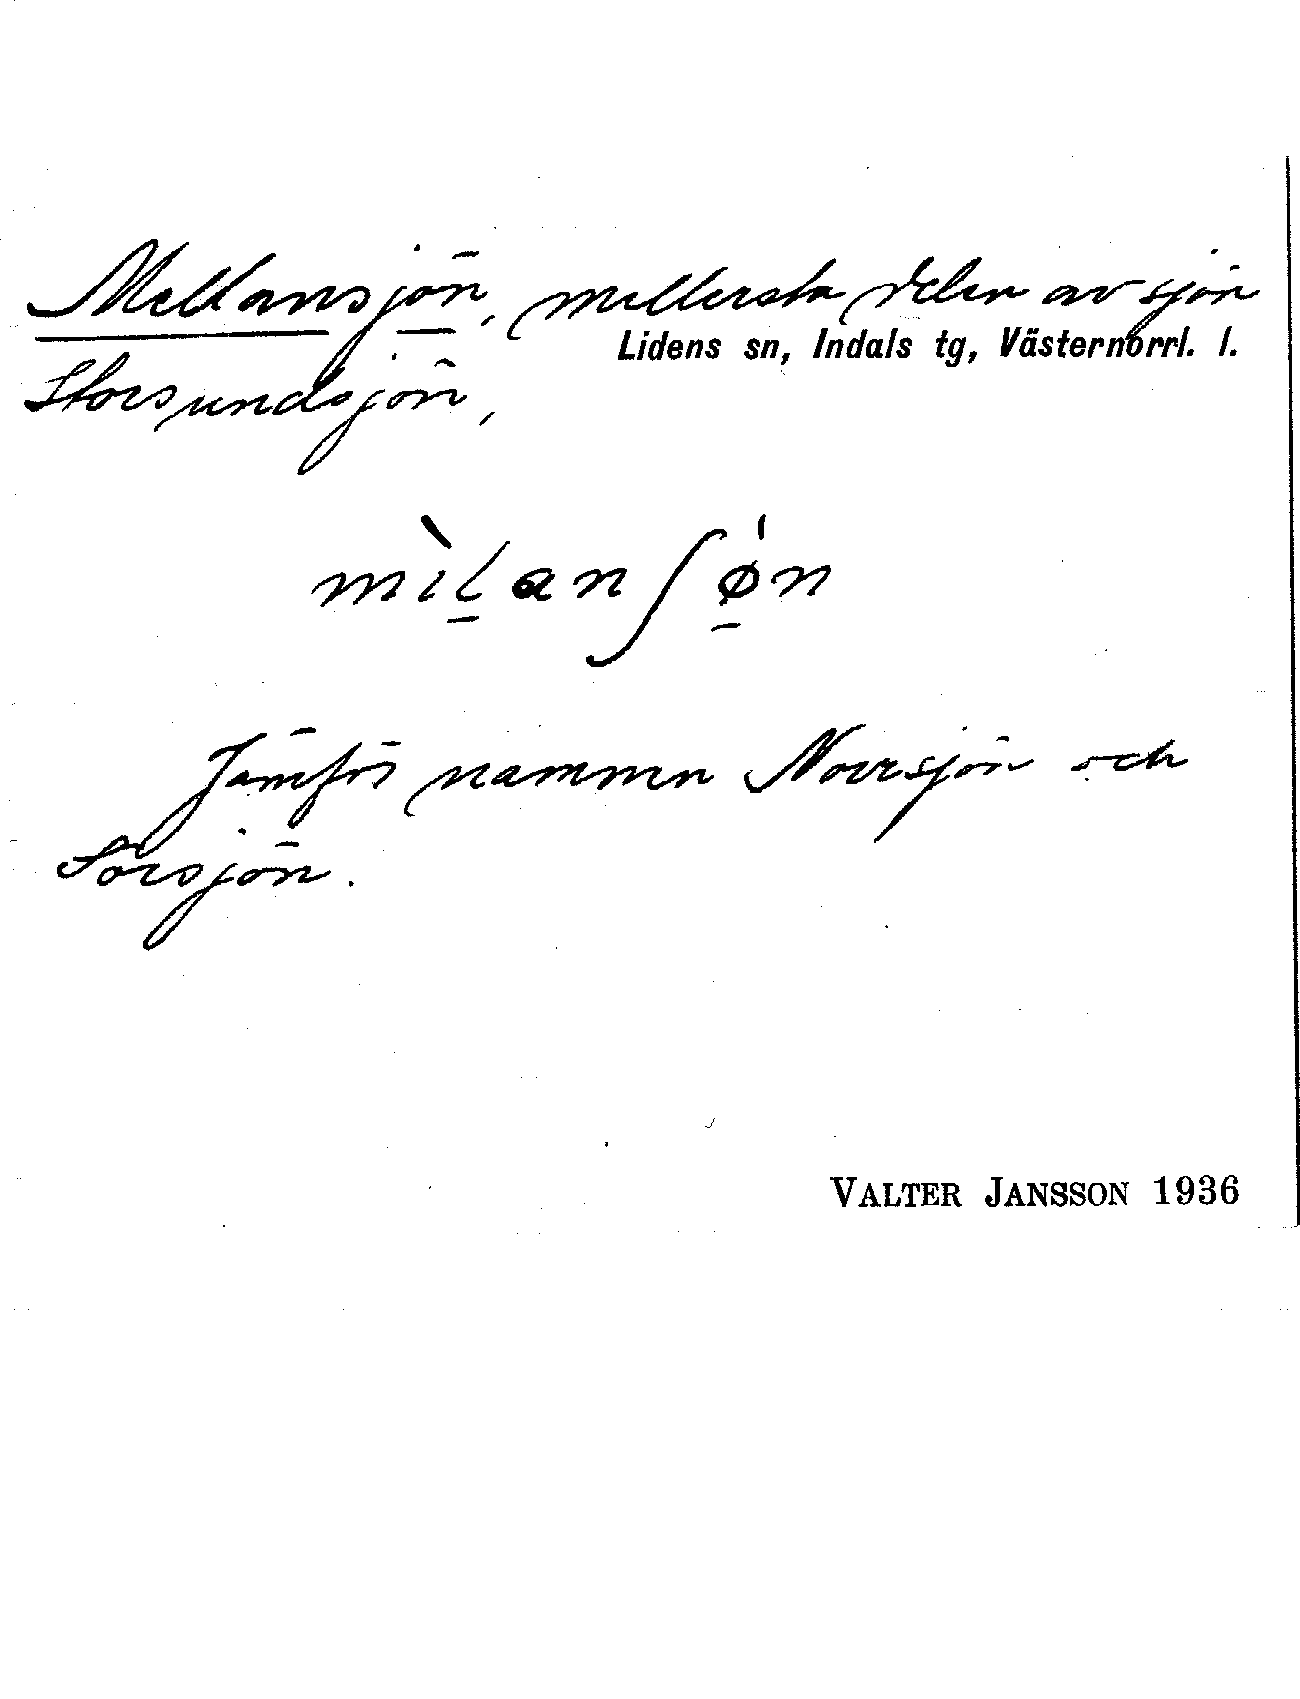 Mellansjön, mellersta delen av sjön
Lidens sn, Indals tg, Västernorrl. l.
Storsundsjön,
mìl̠anʃø̠̍n
Jämför namnen Norrsjön och
Sörsjön.
VALTER JANSSON 1936